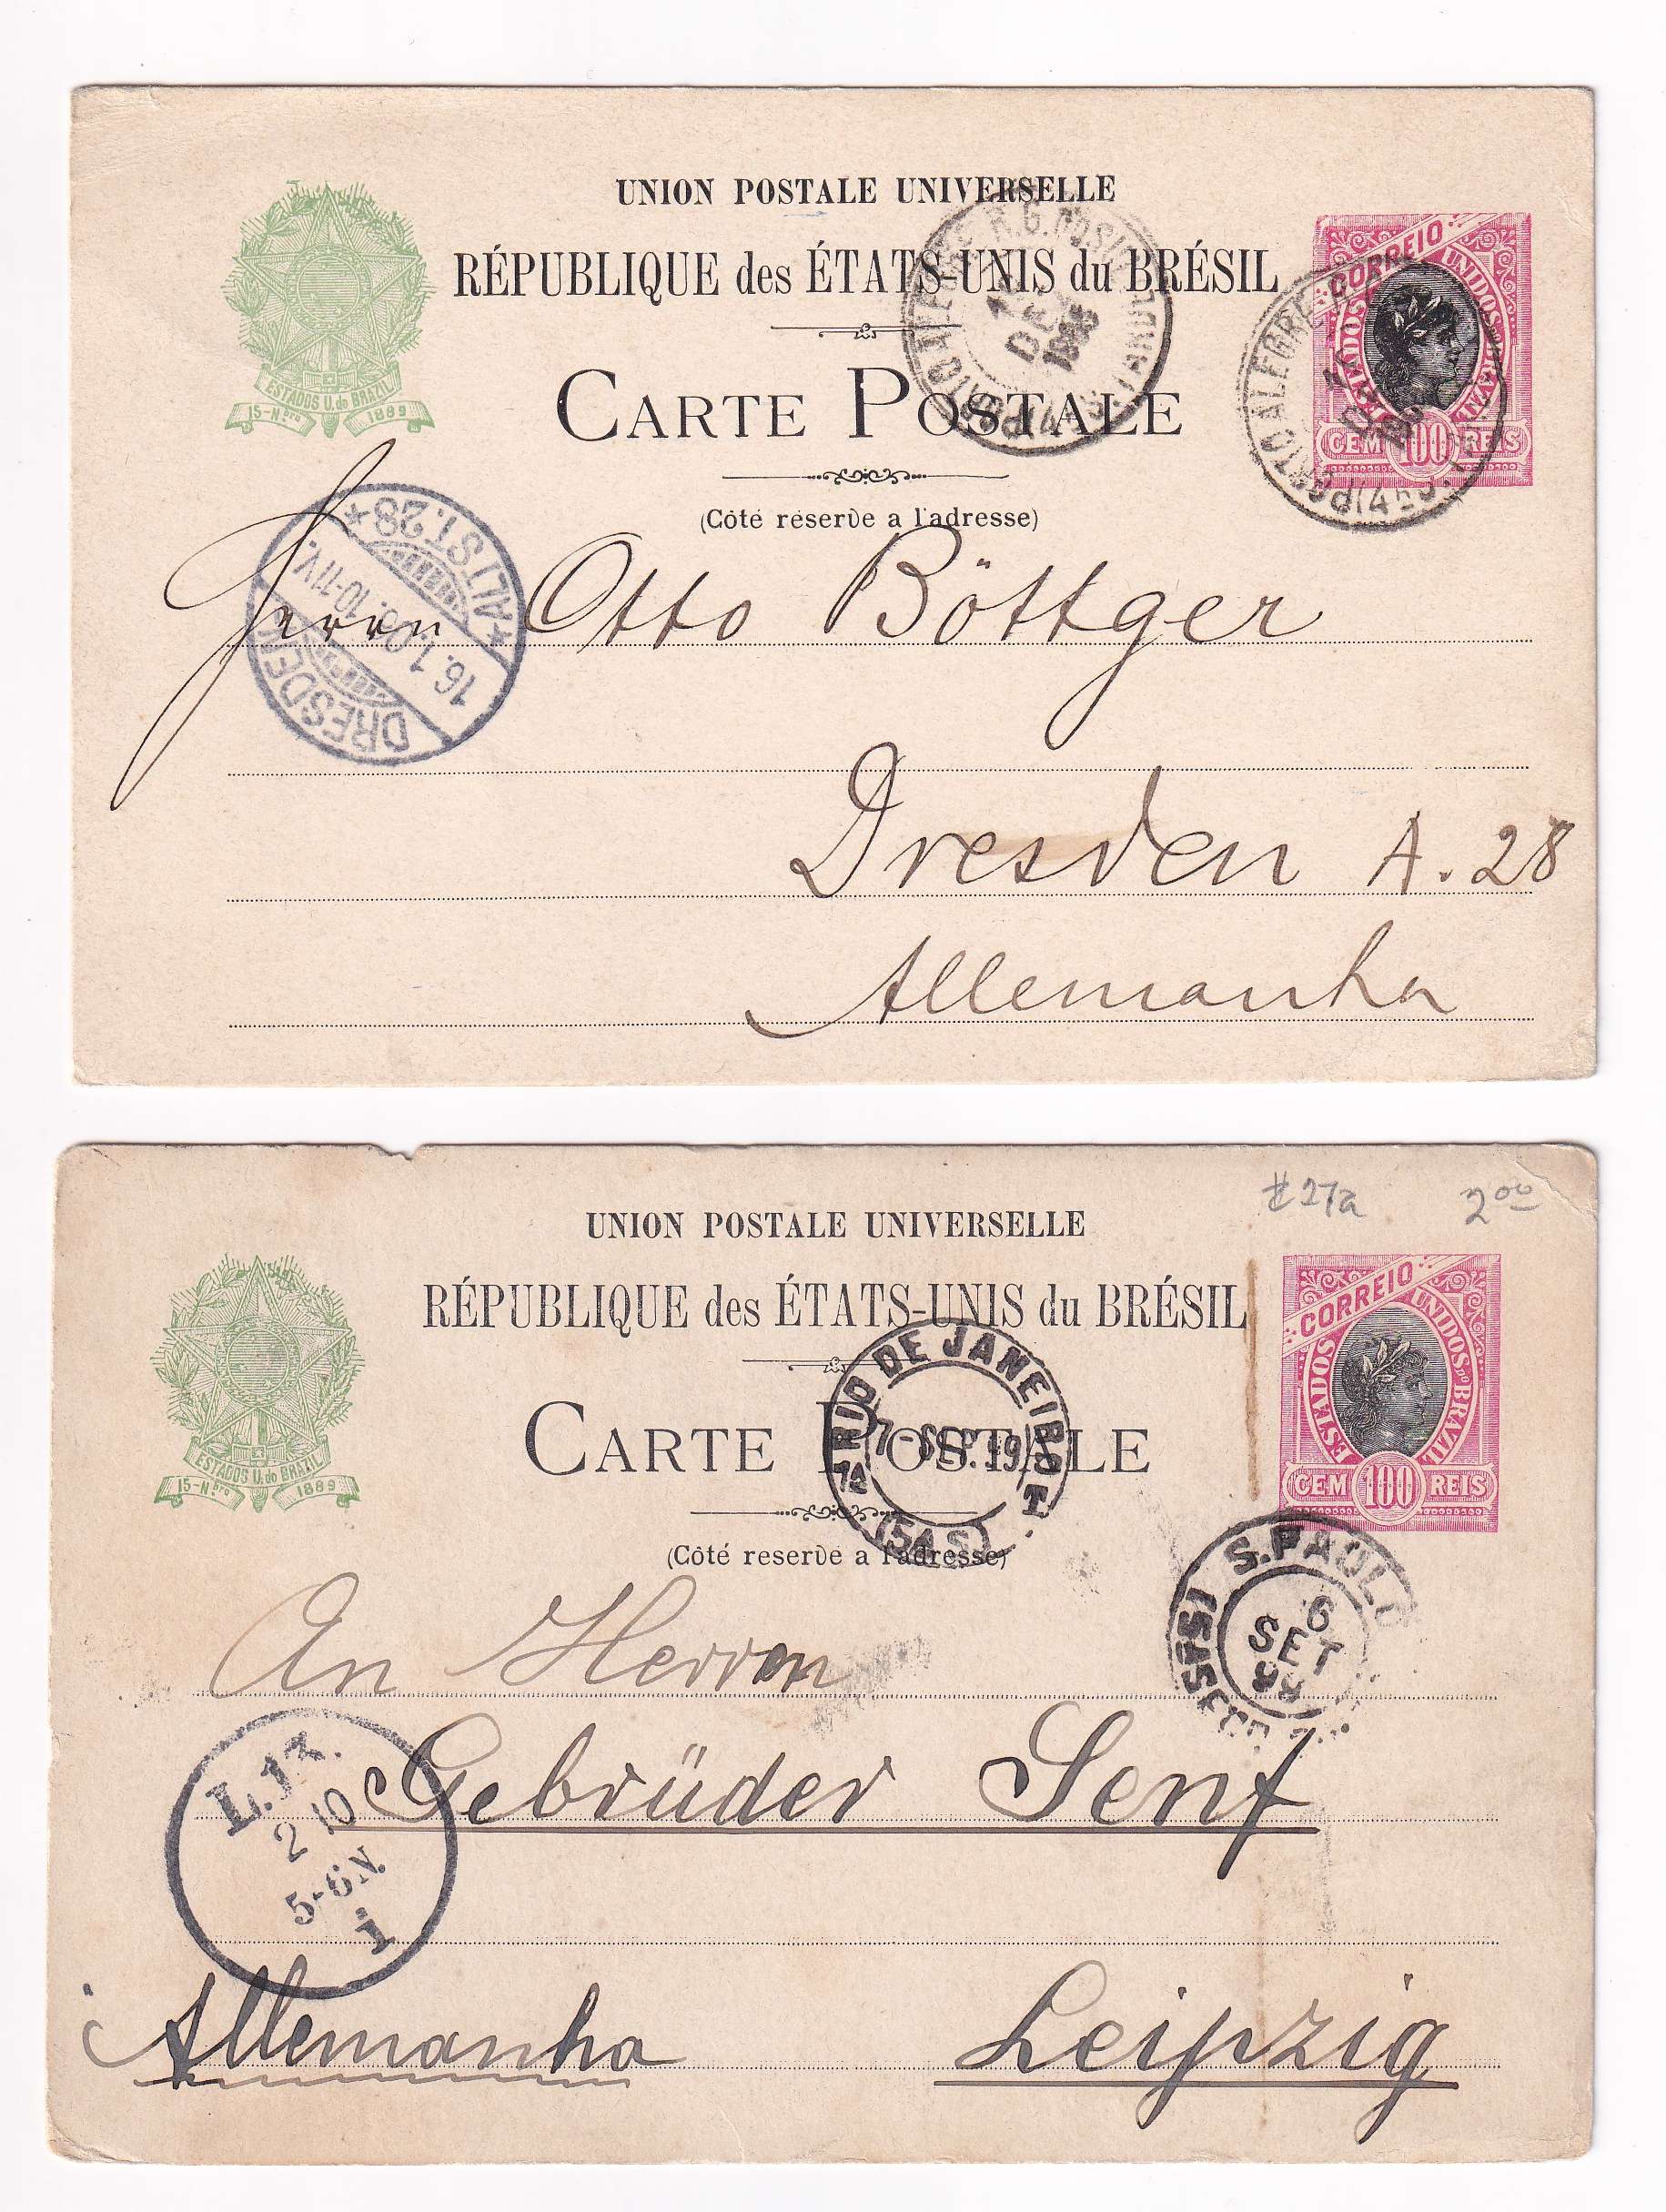 UNION POSTALE UNIVERSELLE
RÉPUBLIQUE des ÉTATS-UNIS du BRÉSIL
CARTE POSTALE
(Côté réservé a l'adresse)
ESTADOS U. do BRAZIL
15-Nbro 1889
CORREIO
ESTADOS UNIDOS DO BRAZIL
CEM 100 REIS
PORTO ALEGRE
DEZ
DRESDEN
ALTST. 28
16.1.0 10-11V.
Herrn Otto Böttger
Dresden A. 28
Allemanha
# 27a 2 00
UNION POSTALE UNIVERSELLE
RÉPUBLIQUE des ÉTATS-UNIS du BRÉSIL
CARTE POSTALE
(Côté reservé a l'adresse)
ESTADOS U. do BRAZIL
15-Nbro 1889
CORREIO
ESTADOS UNIDOS DO BRAZIL
CEM 100 REIS
RIO DE JANEIRO
7-SEP.
(5A S)
S. PAULO
6
SET
An Herren
Gebrüder Senf
L.13.
2 10
5-6N.
i
Allemanha Leipzig